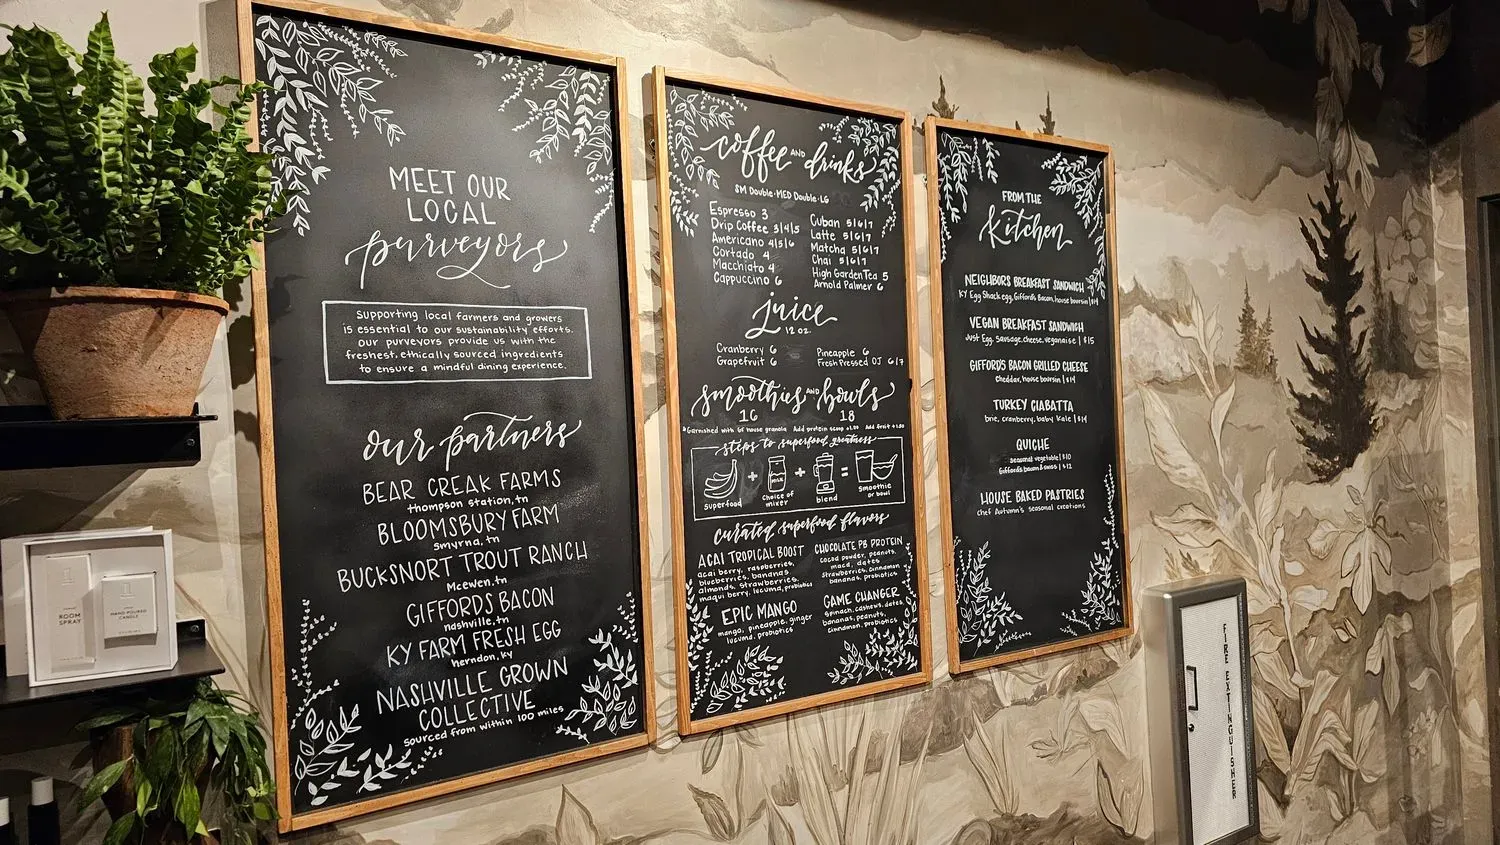 MEET OUR
LOCAL
purveyors
Supporting local farmers and growers
is essential to our sustainability efforts.
our purveyors provide us with the
freshest, ethically sourced ingredients
to ensure a mindful dining experience.
our partners
BEAR CREAK FARMS
thompson station, tn
BLOOMSBURY FARM
smyrna, tn
BUCKSNORT TROUT RANCH
McEwen, tn
GIFFORDS BACON
nashville, tn
KY FARM FRESH EGG
herndon, ky
NASHVILLE GROWN
COLLECTIVE
sourced from within 100 miles
coffee AND drinks
SM Double · MED Double · LG
Espresso 3
Drip Coffee 3|4|5
Americano 4|5|6
Cortado 4
Macchiato 4
Cappuccino 6
Cuban 5|6|7
Latte 5|6|7
Matcha 5|6|7
Chai 5|6|7
High Garden Tea 5
Arnold Palmer 6
juice
12 oz.
Cranberry 6
Grapefruit 6
Pineapple 6
Fresh Pressed OJ 6|7
smoothies AND bowls
16 18
*Garnished with GF house granola Add protein scoop Add fruit
steps to superfood greatness
superfood + choice of mixer + blend = smoothie or bowl
curated superfood flavors
ACAI TROPICAL BOOST
acai berry, raspberries,
blueberries, bananas,
almonds, strawberries,
maqui berry, lucuma, probiotics
EPIC MANGO
mango, pineapple, ginger
lucuma, probiotics
CHOCOLATE PB PROTEIN
cocoa powder, peanuts,
maca, dates
strawberries, cinnamon
bananas, probiotics
GAME CHANGER
spinach, cashews, dates,
bananas, peanuts
cinnamon, probiotics
FROM THE
Kitchen
NEIGHBORS BREAKFAST SANDWICH
KY Egg Shack egg, Giffords Bacon, house boursin | $14
VEGAN BREAKFAST SANDWICH
Just Egg, sausage, cheese, veganaise | $15
GIFFORD'S BACON GRILLED CHEESE
Cheddar, house boursin | $14
TURKEY CIABATTA
brie, cranberry, baby kale | $14
QUICHE
seasonal vegetable | $10
Giffords bacon & swiss | $12
HOUSE BAKED PASTRIES
chef Autumn's seasonal creations
ROOM
SPRAY
HAND POURED
CANDLE
FIRE EXTINGUISHER